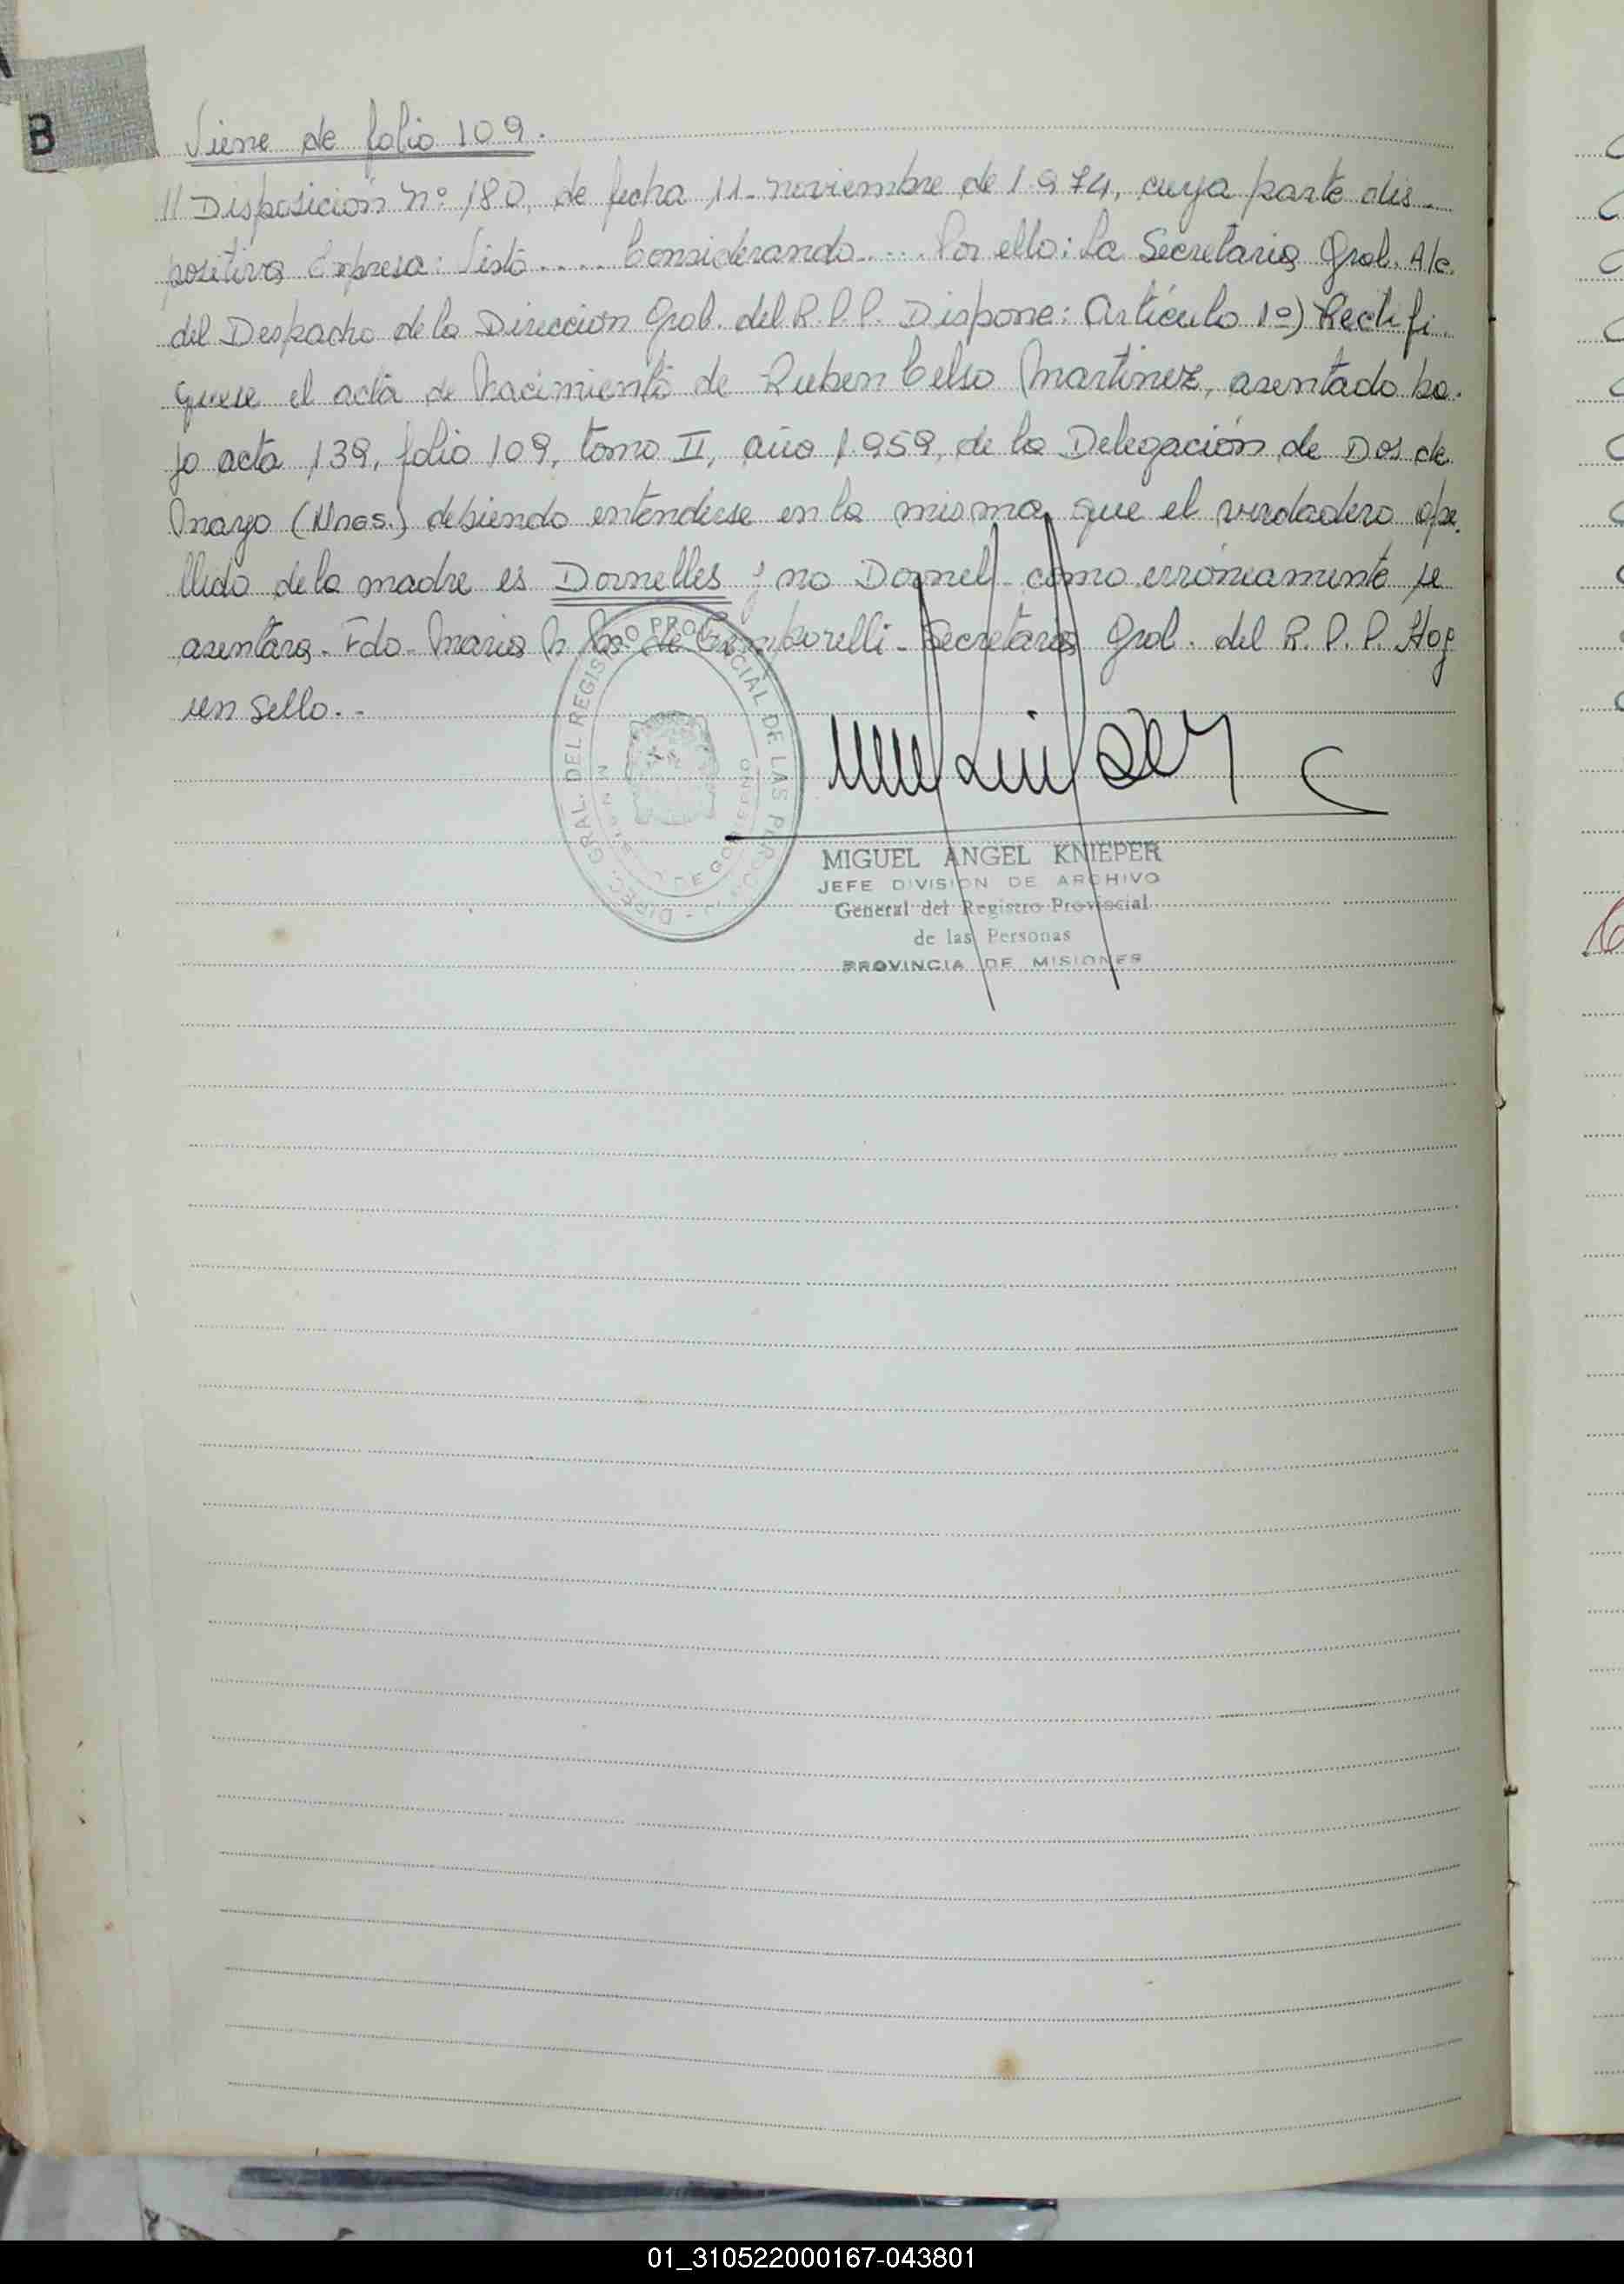 B
Viene de folio 109.
// Disposición nº 180, de fecha 11-noviembre de 1.974, cuya parte dis-
positiva Expresa: Visto..... Considerando..... Por ello: La Secretaria Gral. A/c.
del Despacho de la Direccion Gral. del R.P.P. Dispone: Artículo 1º) Rectifi-
quese el acta de Nacimiento de Ruben Celso Martinez, asentado ba-
jo acta 139, folio 109, tomo II, año 1.959, de la Delegación de Dos de
Mayo (Mnes.) debiendo entenderse en la misma que el verdadero ape-
llido de la madre es Dornelles y no Dornel como erróneamente se
asentara. Fdo. Maria de Secretaria Gral. del R.P.P. Hay
un sello.-
DIREC. GRAL. DEL REGISTRO PROVINCIAL DE LAS PERSONAS
MIGUEL ANGEL KNIEPER
JEFE DIVISION DE ARCHIVO
General del Registro Provincial
de las Personas
PROVINCIA DE MISIONES
01_310522000167-043801